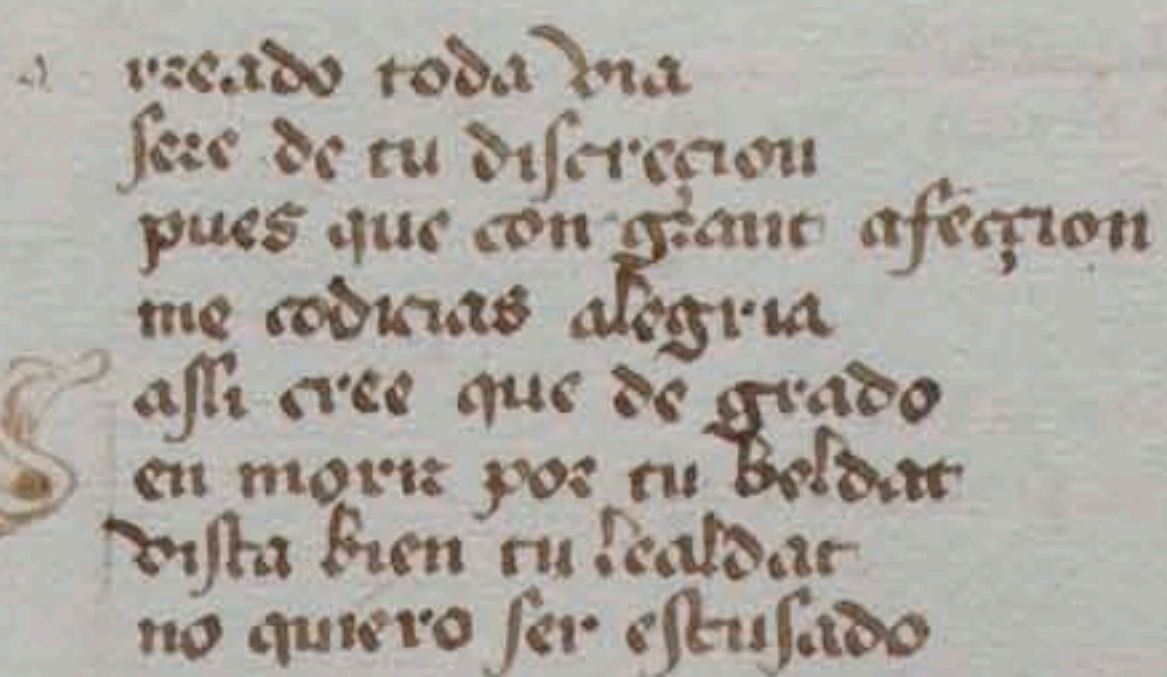 a rreado toda via
sere de tu discreçion
pues que con grant afecçion
me codicias alegria
assi cree que de grado
en morir por tu beldat
vista bien tu lealdat
no quiero ser escusado